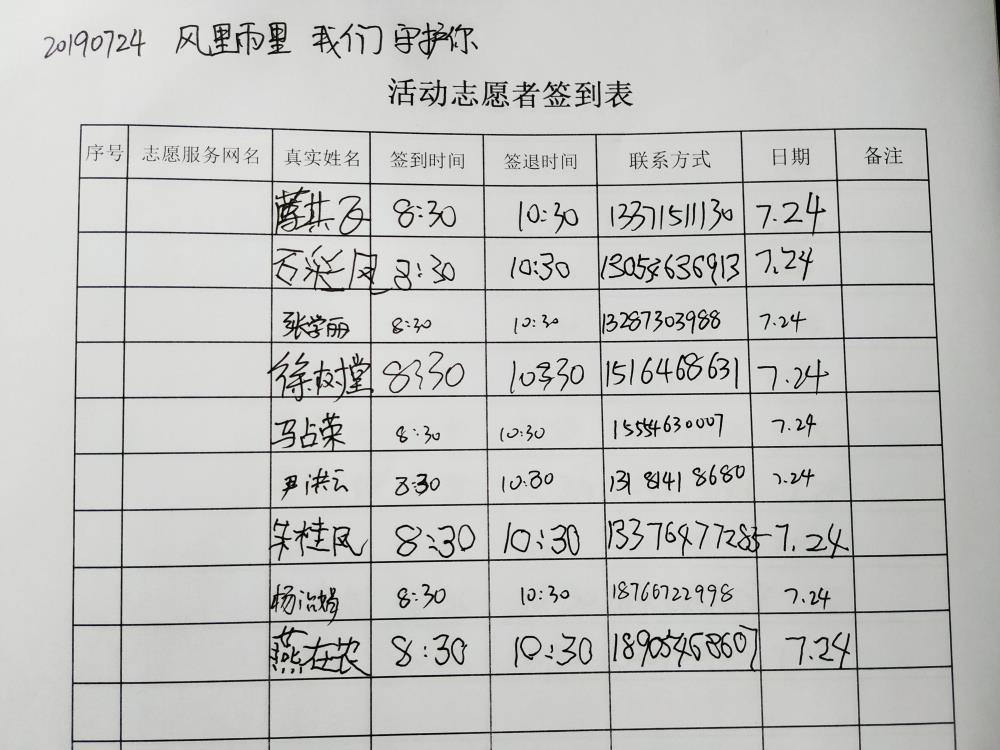 20190724 风里雨里 我们守护你
活动志愿者签到表
序号 志愿服务网名 真实姓名 签到时间 签退时间 联系方式 日期 备注
8:30 10:30 13371511130 7.24
石彩凤 8:30 10:30 13054636913 7.24
张学丽 8:30 10:30 13287303988 7.24
徐树堂 8:30 10:30 15164468631 7.24
马占荣 8:30 10:30 15554630007 7.24
尹洪云 8:30 10:30 131 8141 8680 7.24
朱桂凤 8:30 10:30 13376477285 7.24
杨治娟 8:30 10:30 18766722998 7.24
燕在农 8:30 10:30 18905468607 7.24